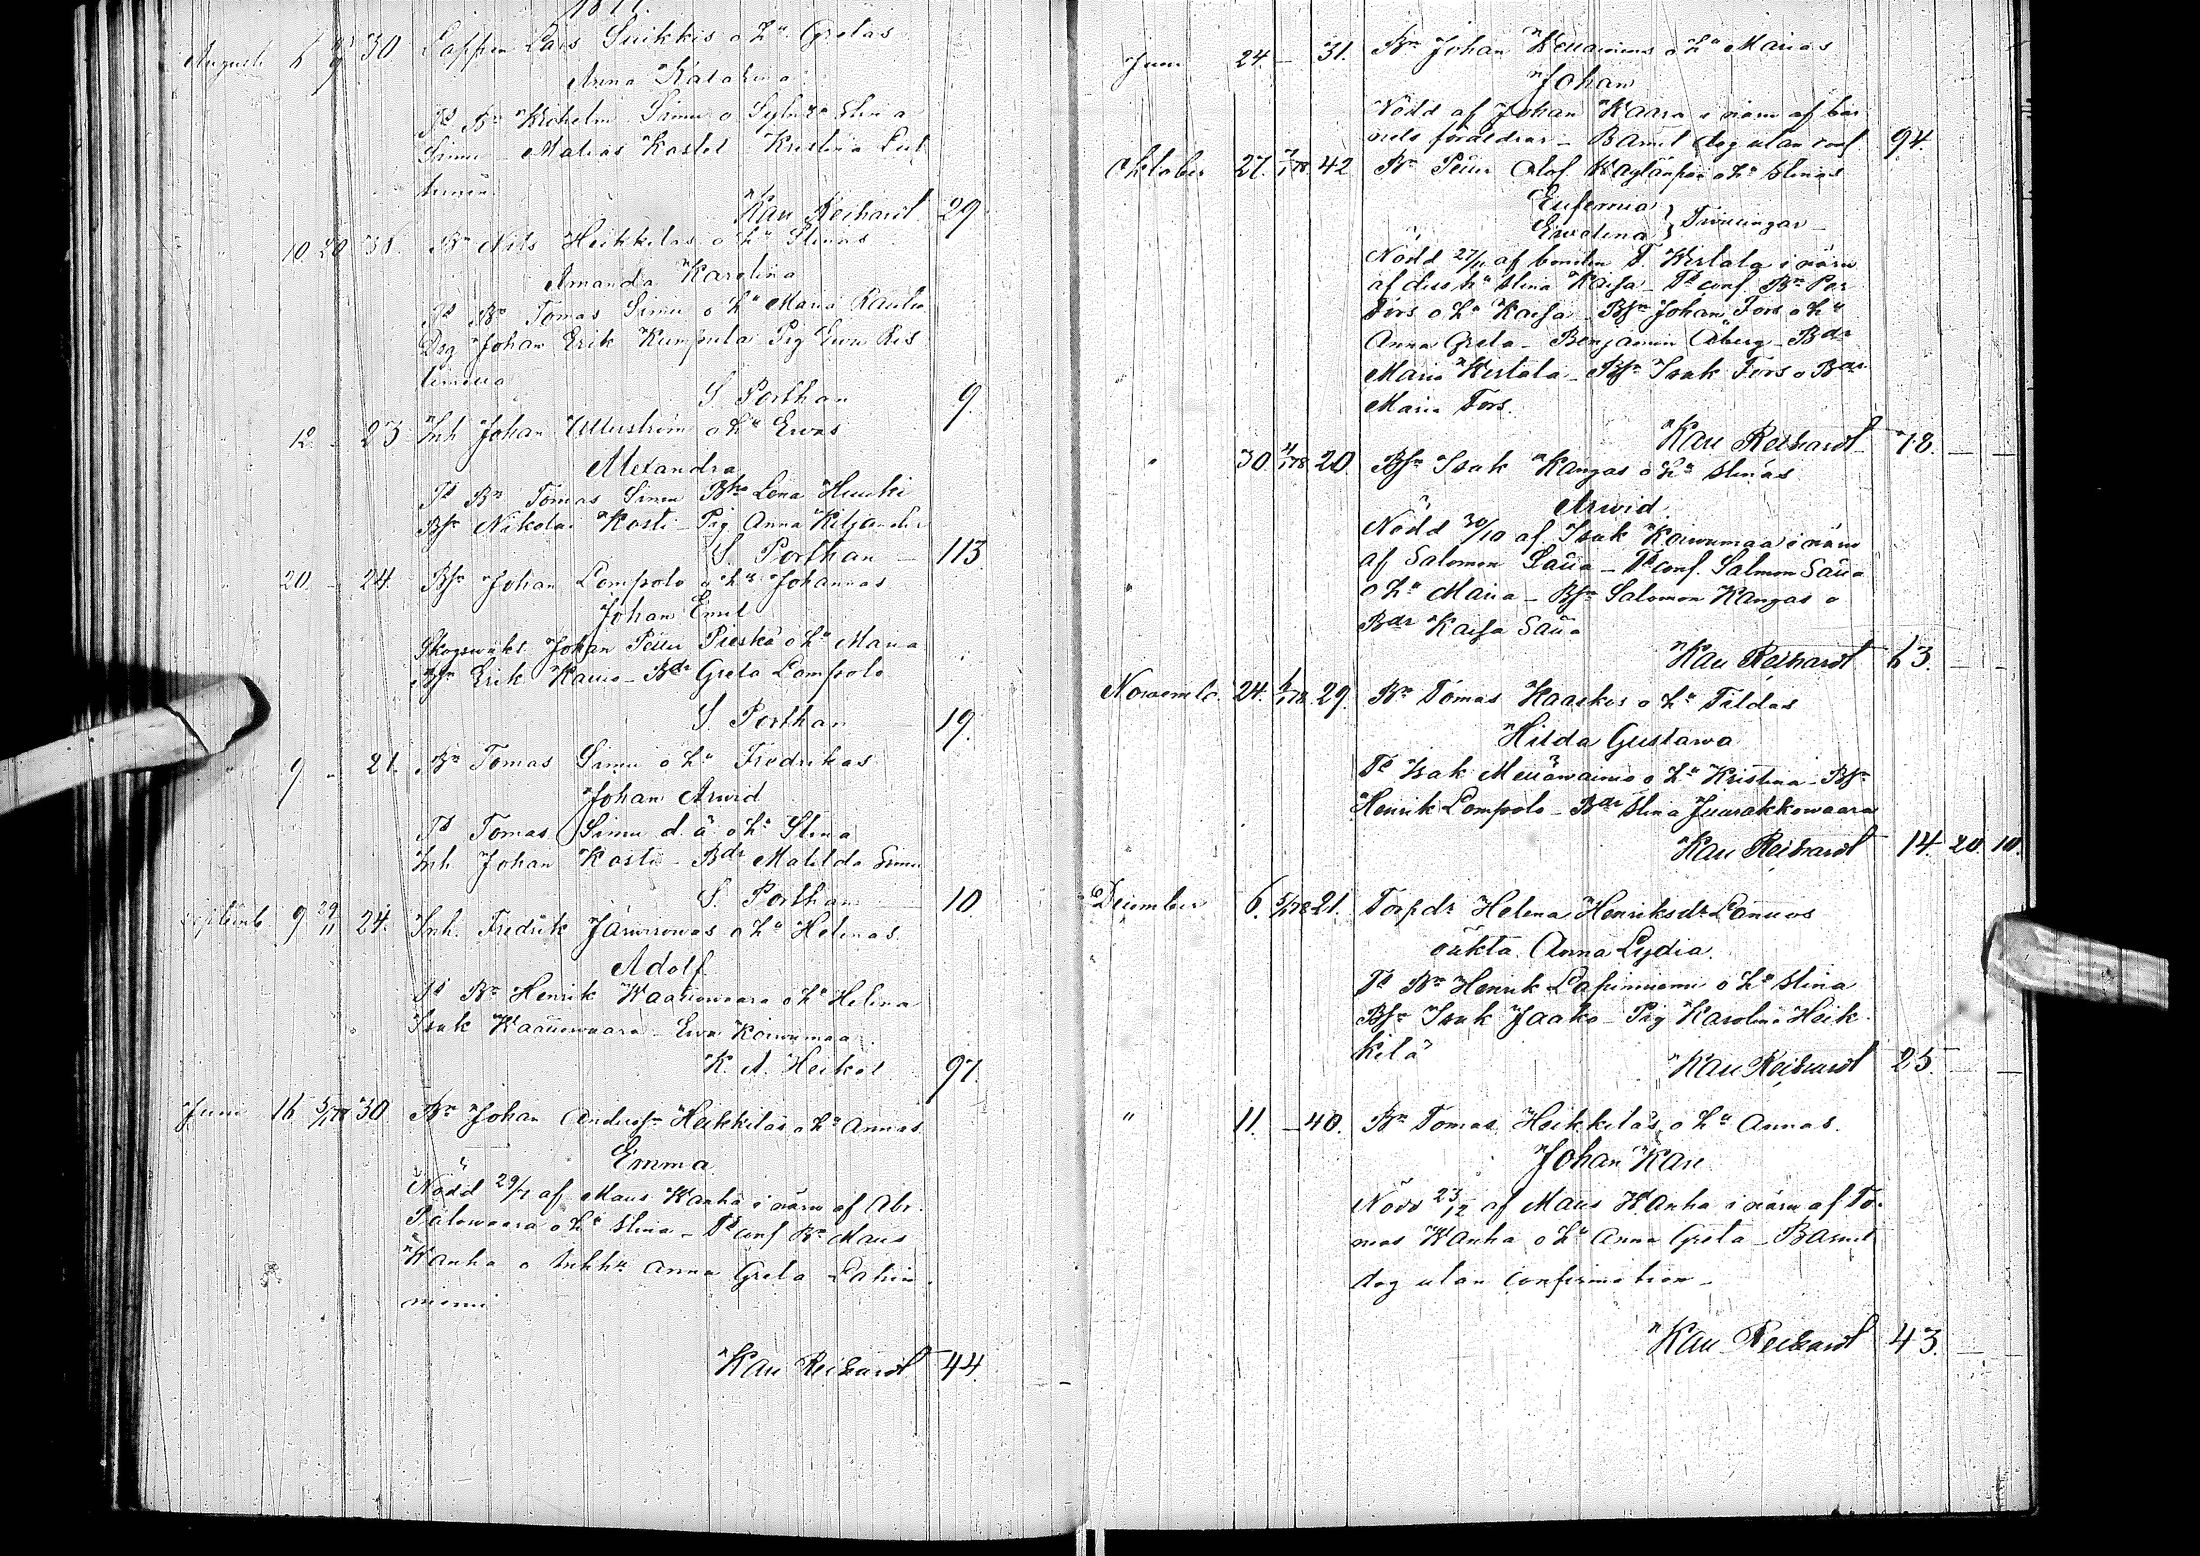 1877.
Augusti 6 9/9 30. Lappen Lars Suikkis o hu Gretas
Anna Katarina
Td Bn Wilhelm Simu o Stina
Simu Matias Kostet Kristina
Karl Reihardt 29
10 20 35. Bn Nils Heikkilas o hu Stinas
Amanda Karolina
Td Bn Tomas Simu o hu Maria
Drg Johan Erik Kumpula Pig
S. Porthan 9.
12. - 23 Inh Johan Ullerström o hu Evas
Alexandra
Td Bn Tomas Simu Lena Huuki
Bsn Nikolai Kosti Pig Anna Kiljander
S. Porthan 113
20. - 24. Bsn Johan Lompolo o hu Johannas
Johan Emil
Skogswakt. Johan Peter Pieskä o hu Maria
Bsn Erik - Bdr Greta Lompolo
S. Porthan 19.
9 - 21. Bn Tomas Simu o hu Fredrikas
Johan Arvid
Td Tomas Simu d. ä. o hu Stina
Inh Johan Kosti - Bdr Matilda Simu
S. Porthan 10
Septemb. 9 29/11 24. Inh. Fredrik o hu Helenas
Adolf
Td Bn Henrik o hu Helena
Isak Ewa Koivumaa
K. A. Heikel 97.
Juni 16 5/1 78 30. Bn Johan Andersn Heikkiläs o hu Annas
Emma
Nödd 29/7 af Maus Wanha i närv af Abr.
Palowaara o hu Stina - Td conf Bn Maus
Wanha o Inhhu Anna Greta Lahin
niemi
Karl Reihardt 44
Juni 24. - 31. Bn Johan o hu Marias
Johan
Nödd af Johan Waara i närv af bar
nets föräldrar - Barnet dog utan conf 94.
Oktober 27. 7/1 78. 42 Bn Peter Olof o hu Stinas
Eufemia
Evelina } Tvillingar
Nödd 27/11 af bonden T. Kertala i närv
af dess hu Stina Kaisa - Td conf. Bn Per
Fors o hu Kaisa - Bsn Johan Fors o hu
Anna Greta - Benjamin Åberg - Bdr
Maria Kertala - Bsn Isak Fors o Bdr
Maria Fors.
Karl Reihardt 78.
" 30. 4/1 78 20. Bsn Isak Kangas o hu Stinas
Arvid
Nödd 30/10 af Isak Koivumaa i närv
af Salomon - Td conf. Salmon
o hu Maria - Bsn Salomon Kangas o
Bdr Kaisa
Karl Reihardt 63.
Novemb. 24. 6/1 78. 29. Bn Tomas Haaskos o hu Tildas
Hilda Gustava
Td Isak o hu Kristina Bsn
Henrik Lompolo - Bdr Stina Juurakkowaara
Karl Reihardt 14. 20. 10.
December 6. 5/1 78 21. Torpdr Helena Henriksdr
oäkta. Anna Lydia.
Td Bn Henrik o hu Stina
Bsn Isak Jaako - Pig Karolina Heik
kilä
Karl Reihardt 25
" 11. - 40. Bn Tomas Heikkiläs o hu Annas.
Johan Karl
Nödd 23/12 af Maus Wanha i närv af To-
mas Wanha o hu Anna Greta - Barnet
dog utan confirmation -
Karl Reihardt 43.